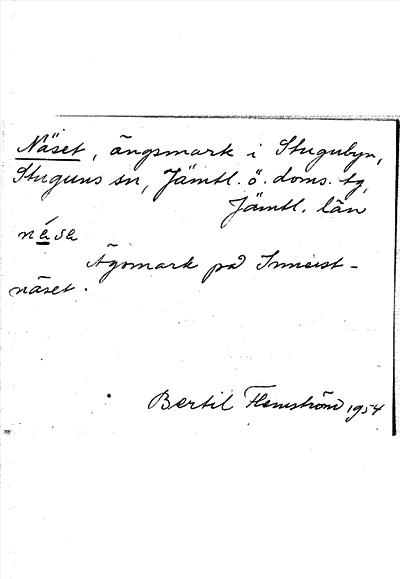 Näset, ängsmark i Stugubyn,
Stuguns sn, Jämtl. ö. doms. tg,
Jämtl. län
näsa
Ägomark på Inneist-
näset.
Bertil Flemström 1954